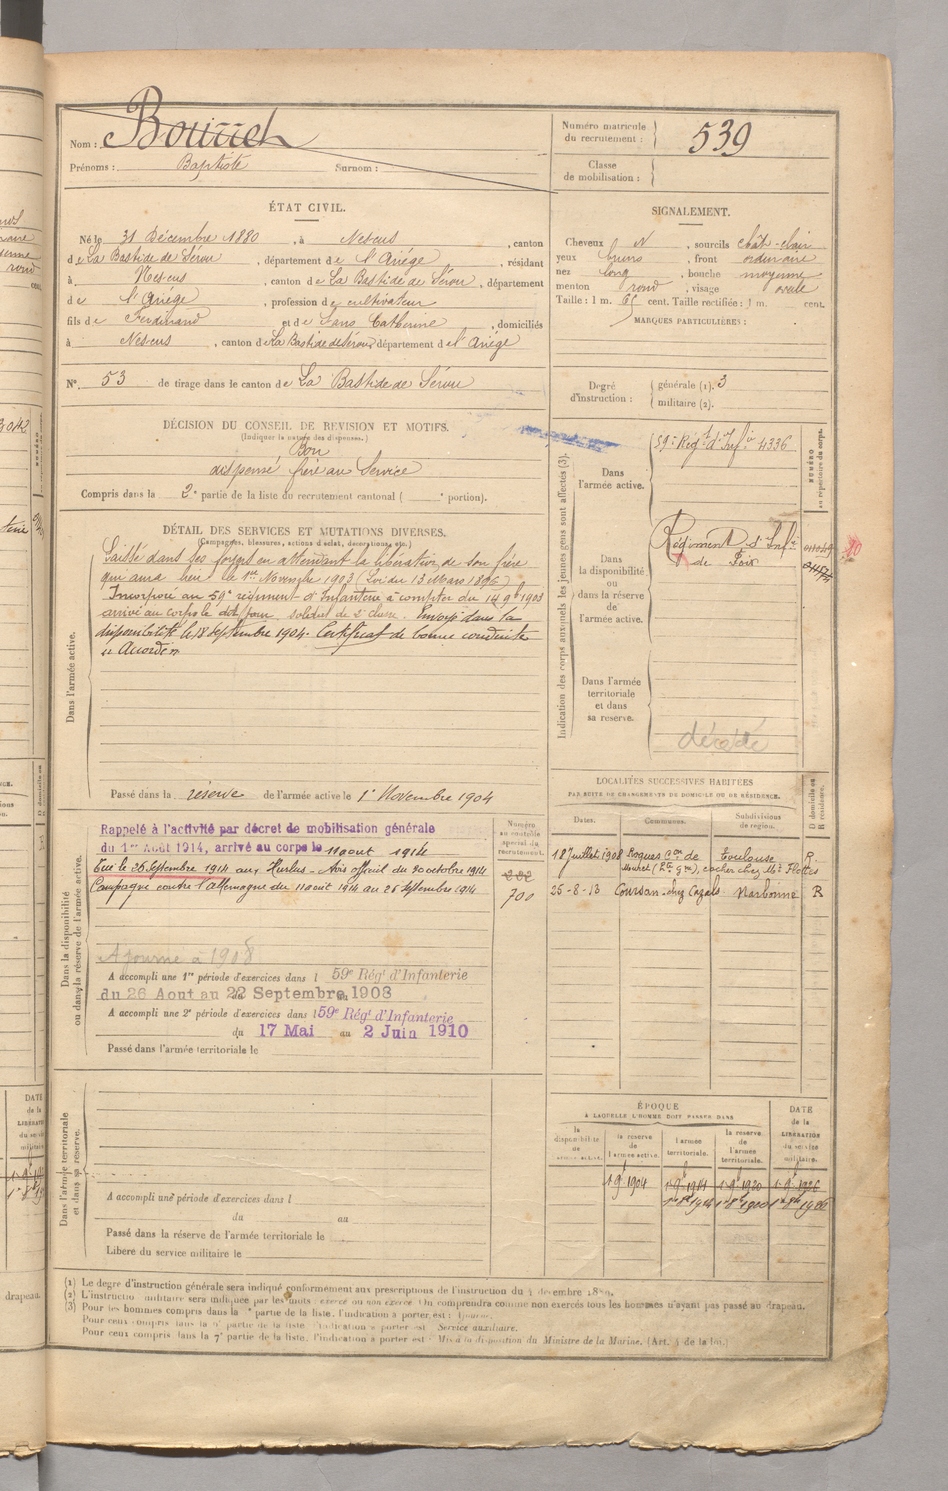 Nom : Bourrel
Prénoms : Baptiste Surnom :
Numéro matricule
du recrutement : 539
Classe
de mobilisation :
ÉTAT CIVIL.
Né le 31 Décembre 1880, à Nescus, canton
de La Bastide de Sérou, département de l'Ariége, résidant
à Nescus, canton de La Bastide de Sérou, département
de l'Ariége, profession de cultivateur
fils de Ferdinand et de Sans Catherine, domiciliés
à Nescus, canton de La Bastide de Sérou, département de l'Ariége
N° 53 de tirage dans le canton de La Bastide de Sérou
SIGNALEMENT.
Cheveux N, sourcils chât-clair
yeux bruns, front ordinaire
nez long, bouche moyenne
menton rond, visage ovale
Taille : 1 m. 65 cent. Taille rectifiée : 1 m. cent.
MARQUES PARTICULIÈRES :
Degré
d'instruction :
générale (1). 3
militaire (2).
DÉCISION DU CONSEIL DE REVISION ET MOTIFS.
(Indiquer la nature des dispenses.)
Bon
dispensé frère au Service
Compris dans la 2e partie de la liste du recrutement cantonal ( e portion).
DÉTAIL DES SERVICES ET MUTATIONS DIVERSES.
(Campagnes, blessures, actions d'éclat, décorations, etc.)
Dans l'armée active.
Laissé dans ses foyers en attendant la libération de son frère
qui aura lieu le 1er Novembre 1903 (Loi du 13 Mars 1896)
Incorporé au 59e régiment d'Infanterie à compter du 14 9bre 1903
arrivé au corps le dit jour soldat de 2e classe. Envoyé dans la
disponibilité le 18 Septembre 1904. Certificat de bonne conduite
" Accordé "
Passé dans la réserve de l'armée active le 1er Novembre 1904
Indication des corps auxquels les jeunes gens sont affectés (3).
NUMÉRO
au répertoire du corps.
Dans
l'armée active.
59e Régt d'Infie 4336
Dans
la disponibilité
ou
dans la réserve
de
l'armée active.
Régiment d'Infie
de Foix
Dans l'armée
territoriale
et dans
sa reserve.
décédé
LOCALITÉS SUCCESSIVES HABITÉES
PAR SUITE DE CHANGEMENTS DE DOMICILE OU DE RÉSIDENCE.
Dates. Communes. Subdivisions
de région. D domicile ou
R résidence.
12 Juillet 1908 Roques Con de Toulouse R.
Muret (Hte Gne), cocher chez Mr
25-8-13 Coursan chez Cazals Narbonne R
Dans la disponibilité
ou dans la réserve de l'armée active.
Numéro
au contrôle
spécial du
recrutement.
700
Rappelé à l'activité par décret de mobilisation générale
du 1er Août 1914, arrivé au corps le 11 aout 1914
Tué le 26 Septembre 1914 aux Hurlus - Avis officiel du 30 octobre 1914
Campagne contre l'allemagne du 11 aout 1914 au 26 septembre 1914
Ajourné à 1908
A accompli une 1re période d'exercices dans l 59e Rég! d'Infanterie
du 26 Aout au 22 Septembre 1908
A accompli une 2e période d'exercices dans l 59e Rég! d'Infanterie
du 17 Mai au 2 Juin 1910
Passé dans l'armée territoriale le
Dans l'armée territoriale
et dans sa réserve.
A accompli une période d'exercices dans l
du au
Passé dans la réserve de l'armée territoriale le
Libéré du service militaire le
ÉPOQUE
À LAQUELLE L'HOMME DOIT PASSER DANS
DATE
de la
LIBÉRATION
du service
militaire.
la
disponibilité
de
la réserve
de
l'armée active.
l'armée
territoriale.
la réserve
de
l'armée
territoriale.
1 9bre 1904 1 9bre 1914 1 9bre 1920 1 9bre 1926
1er 8bre 1914 1er 8bre 1920 1er 8bre 1926
(1) Le degré d'instruction générale sera indiqué conformément aux prescriptions de l'instruction du 4 décembre 1889.
(2) L'instruction militaire sera indiquée par les mots exercé ou non exercé. On comprendra comme non exercés tous les hommes n'ayant pas passé au drapeau.
(3) Pour les hommes compris dans la e partie de la liste, l'indication à porter est : Ajourné.
Pour ceux compris dans la 6e partie de la liste, l'indication à porter est : Service auxiliaire.
Pour ceux compris dans la 7e partie de la liste, l'indication à porter est : Mis à la disposition du Ministre de la Marine. (Art. 4 de la loi.)